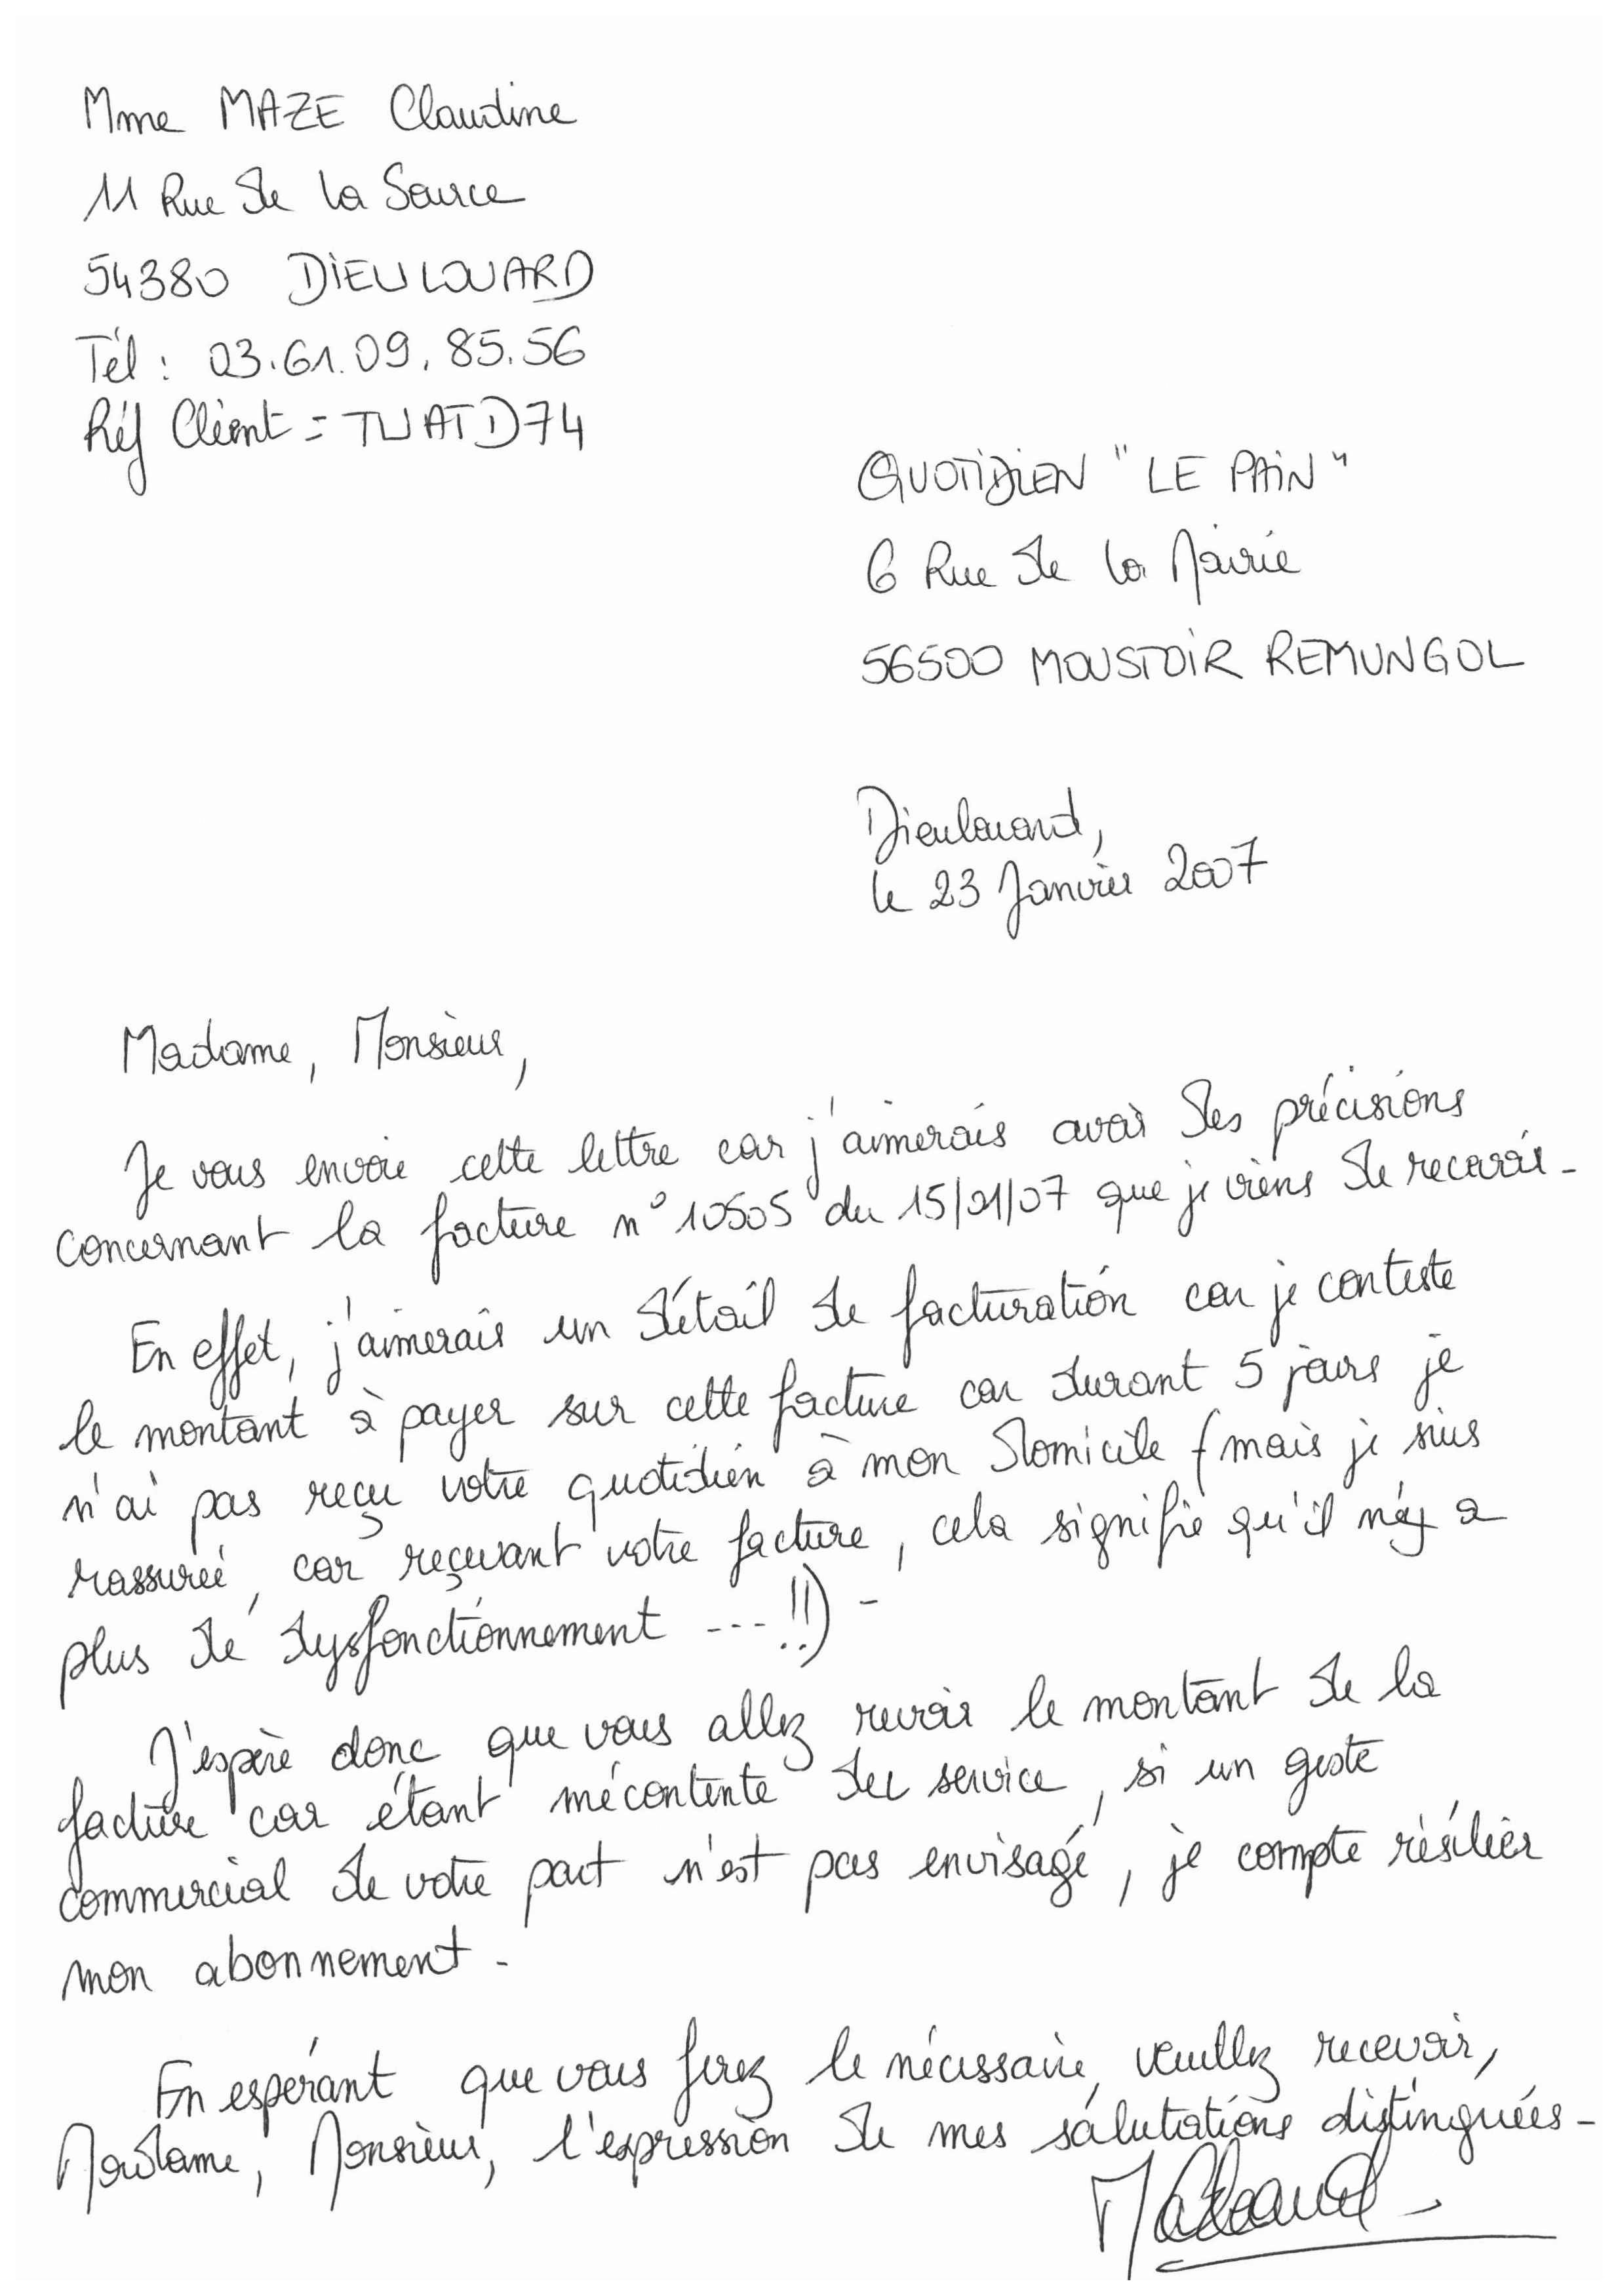 Mme MAZE Claudine
11 Rue de la Source
54380 DIEULOUARD
Tél : 03.61.09.85.56
Réf Client = TWATD74
QUOTIDIEN "LE PAIN"
6 Rue de la Mairie
56500 MOUSTOIR REMUNGOL
Dieulouard,
le 23 Janvier 2007
Madame, Monsieur,
Je vous envoie cette lettre car j'aimerais avoir des précisions
concernant la facture n° 10505 du 15/01/07 que je viens de recevoir.
En effet, j'aimerais un détail de facturation car je conteste
le montant à payer sur cette facture car durant 5 jours je
n'ai pas reçu votre quotidien à mon domicile (mais je suis
rassurée, car reçevant votre facture, cela signifie qu'il n'y a
plus de dysfonctionnement ...!!) -
J'espère donc que vous allez revoir le montant de la
facture car étant mécontente du service, si un geste
commercial de votre part n'est pas envisagé, je compte résilier
mon abonnement.
En espérant que vous ferez le nécessaire, veuillez recevoir,
Madame, Monsieur, l'expression de mes salutations distinguées.